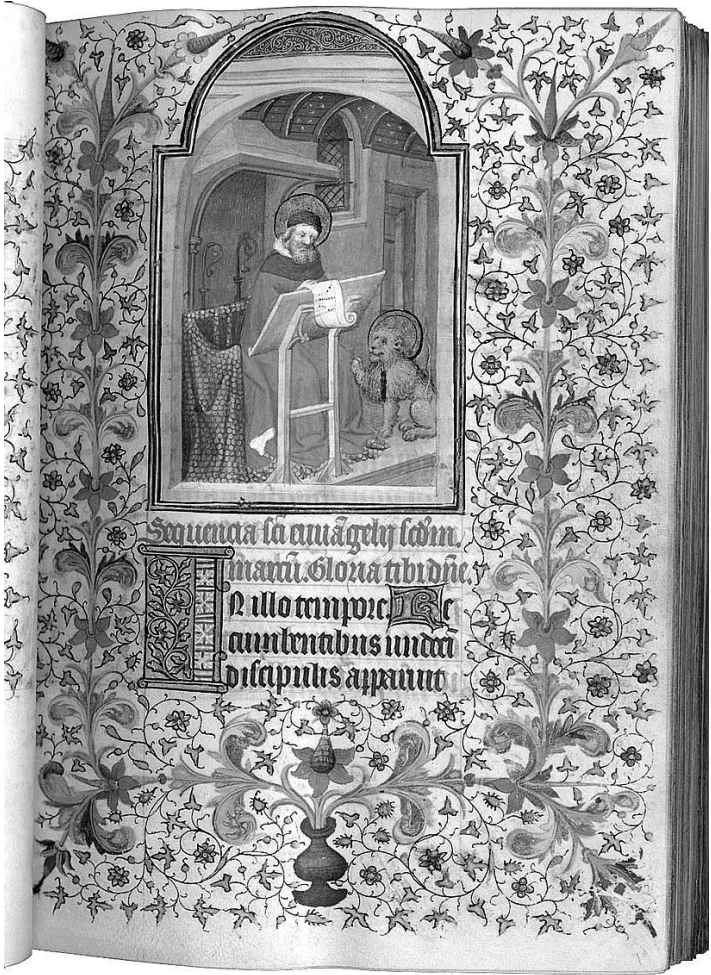 Sequencia sc̄i euuāgelij scd̄m
marcū. Gloria tibi dn̄e.
In illo tempore. Re
cumbentibus undeci
discipulis apparuit